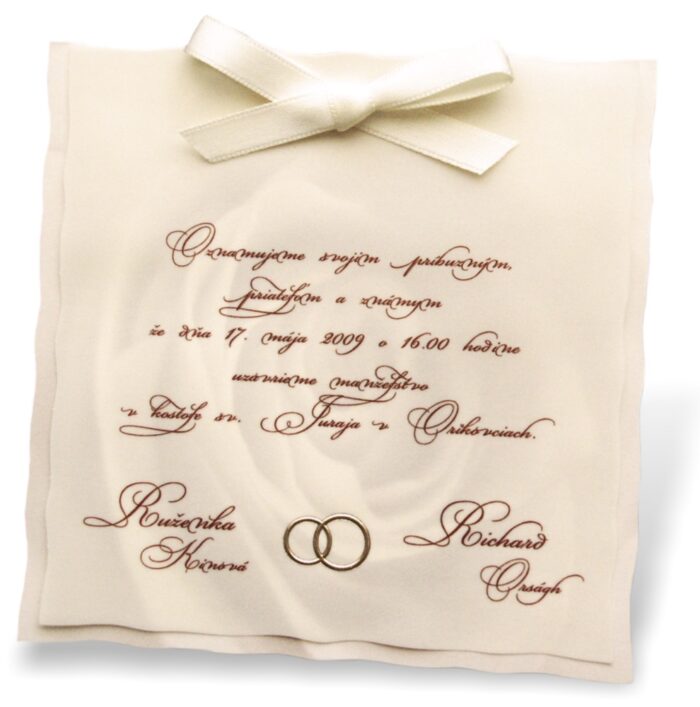 Oznamujeme svojim príbuzným,
priateľom a známym
že dňa 17. mája 2009 o 16.00 hodine
uzavrieme manželstvo
v kostole sv. Juraja v Orikovciach.
Ruženka Richard
Kinová Orságh